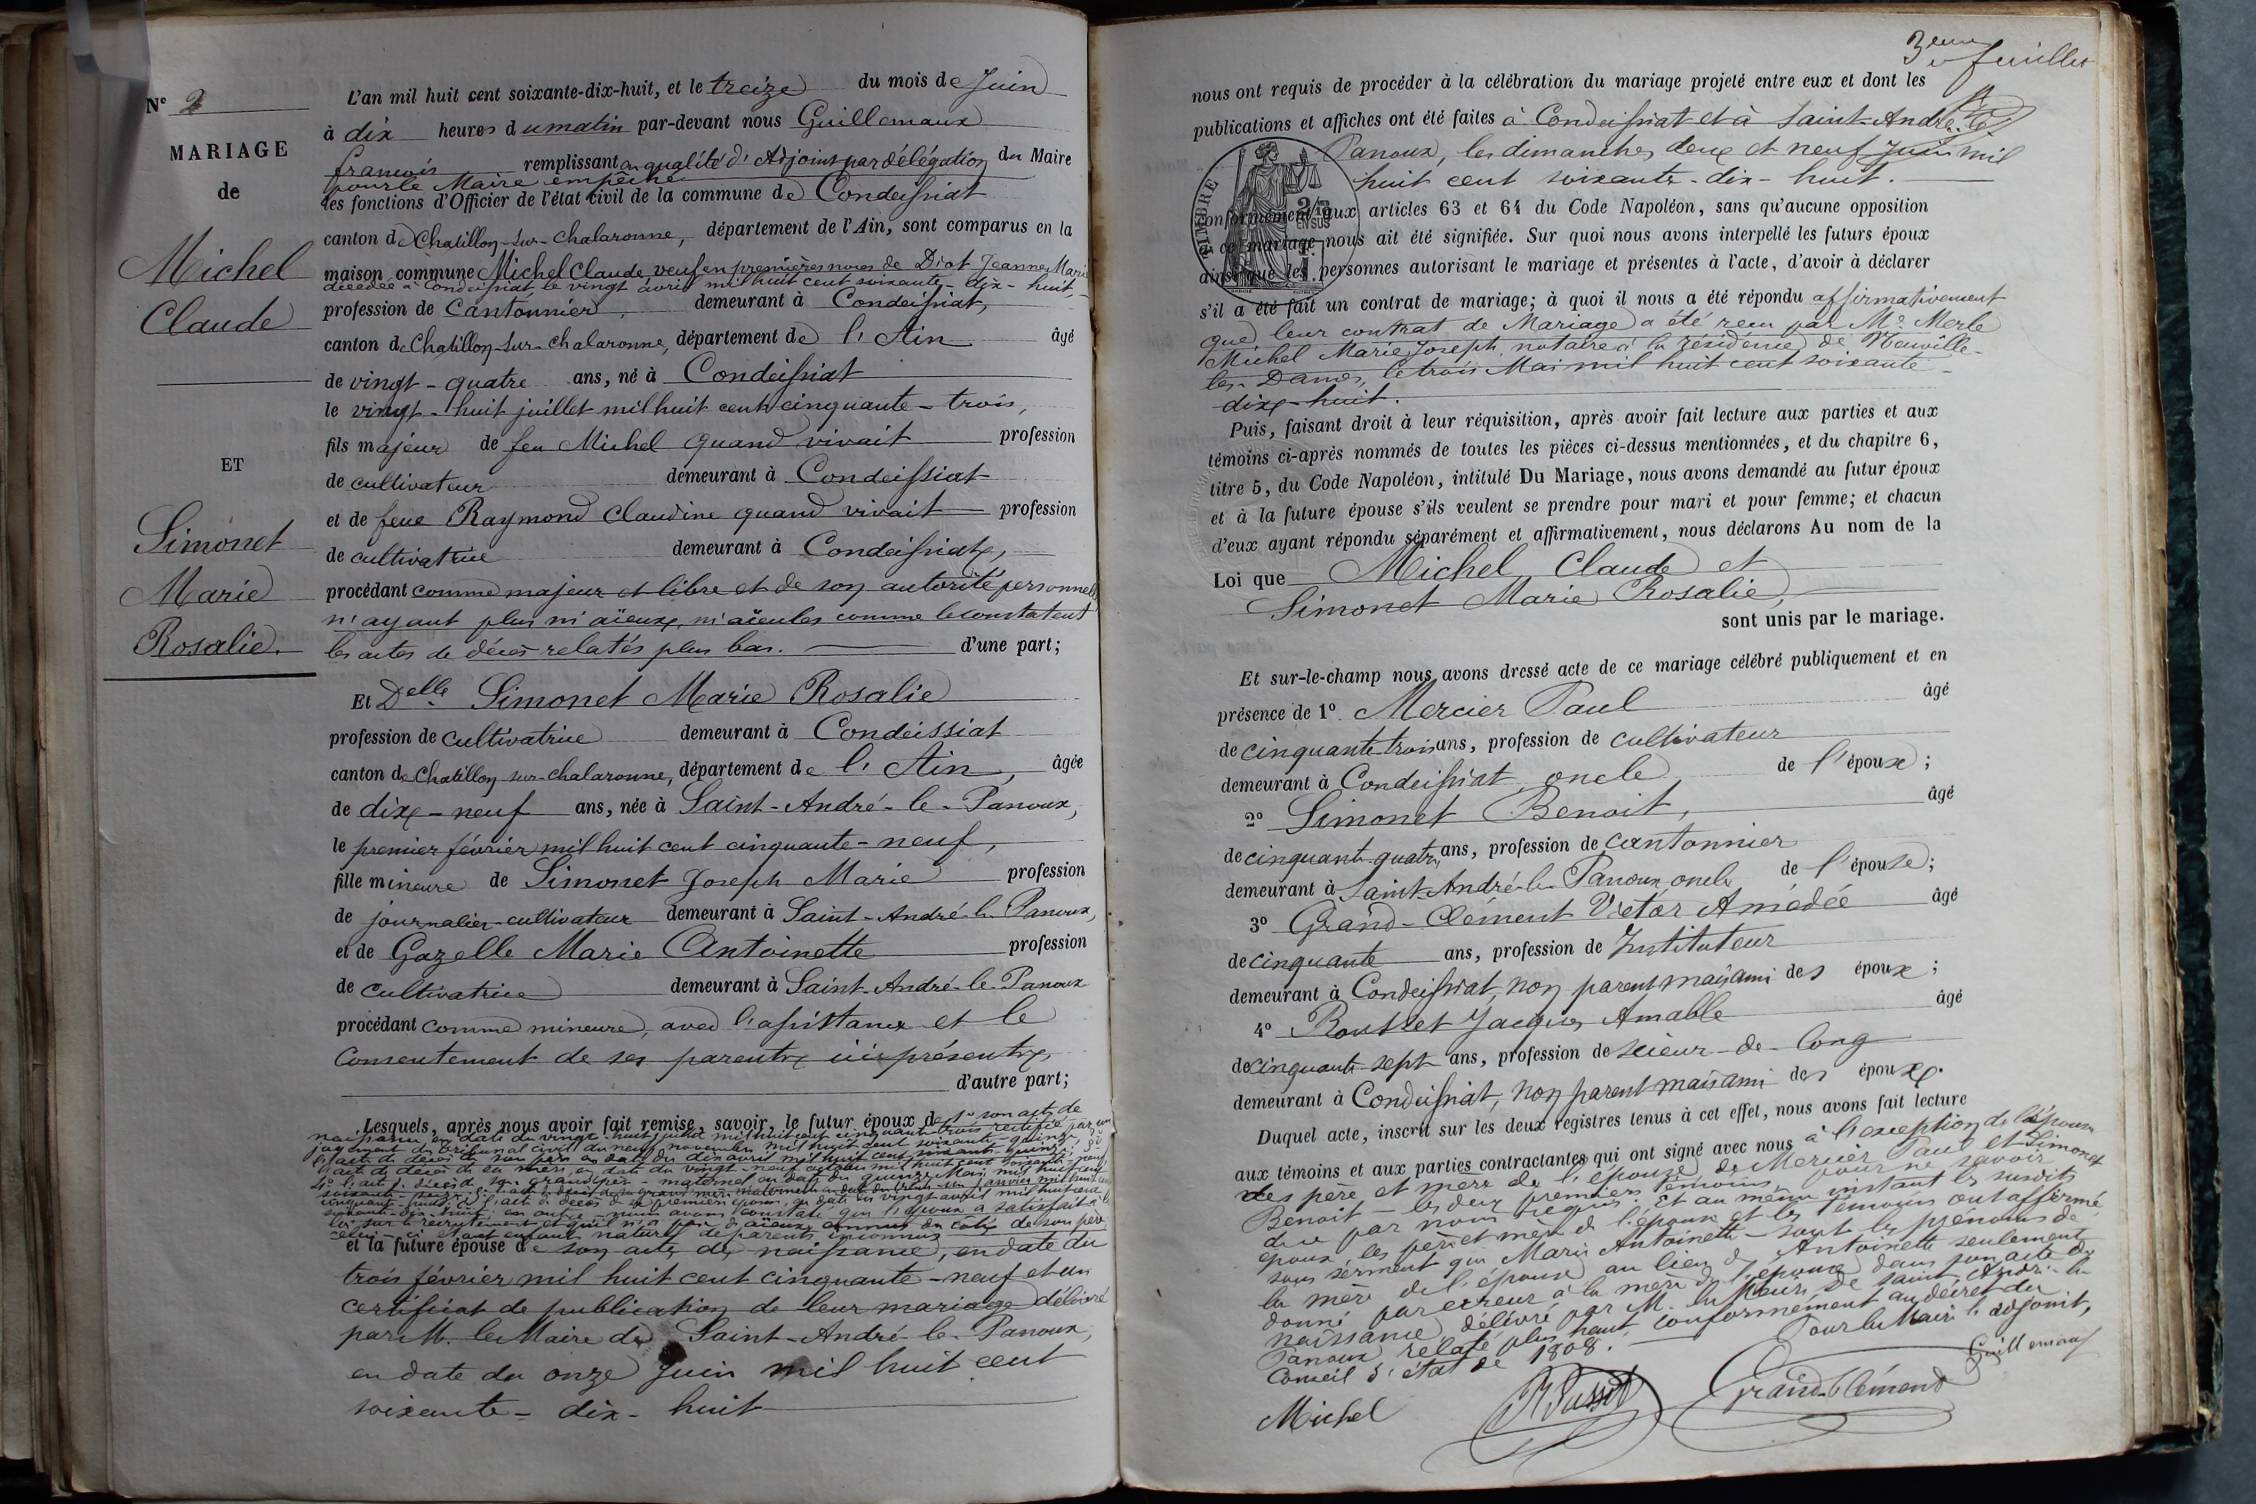 N° 2
MARIAGE
de
Michel
Claude
ET
Simonet
Marie
Rosalie.
L'an mil huit cent soixante-dix-huit, et le treize du mois de Juin
à dix heures du matin par-devant nous Guillemaux
françois remplissant en qualité d'Adjoint par délégation du Maire
pour le Maire empêché
les fonctions d'Officier de l'état civil de la commune de Condeissiat
canton de Chatillon-sur-Chalaronne, département de l'Ain, sont comparus en la
maison commune Michel Claude, veuf en premières noces de Diat Jeanne Marie
décédée à Condeissiat le vingt avril mil huit cent soixante-dix-huit,
profession de Cantonnier, demeurant à Condeissiat,
canton de Chatillon-sur-Chalaronne, département de l'Ain âgé
de vingt-quatre ans, né à Condeissiat
le vingt-huit juillet mil huit cent cinquante-trois,
fils majeur de feu Michel quand vivait profession
de cultivateur demeurant à Condeissiat
et de feue Raymond Claudine quand vivait profession
de cultivatrice demeurant à Condeissiat,
procédant comme majeur et libre et de son autorité personnelle
n'ayant plus ni aïeux, ni aïeules comme le constatent
les actes de décès relatés plus bas. d'une part;
Et Delle Simonet Marie Rosalie
profession de Cultivatrice demeurant à Condeissiat
canton de Chatillon-sur-Chalaronne, département de l'Ain, âgée
de dix-neuf ans, née à Saint-André-le-Panoux,
le premier février mil huit cent cinquante-neuf,
fille mineure de Simonet Joseph Marie profession
de journalier-cultivateur demeurant à Saint-André-le-Panoux,
et de Gazelle Marie Antoinette profession
de cultivatrice demeurant à Saint-André-le-Panoux
procédant comme mineure, avec l'assistance et le
consentement de ses parents ici présents,
d'autre part;
Lesquels, après nous avoir fait remise, savoir, le futur époux de 1° son acte de
naissance en date du vingt-huit juillet mil huit cent cinquante-trois rectifié par un
jugement du tribunal civil du neuf novembre mil huit cent soixante-quinze, 2°
l'acte de décès de son père en date du dix avril mil huit cent soixante-quinze, 3°
l'acte de décès de sa mère, en date du vingt-neuf mil huit cent
4° l'acte de décès de son grand-père maternel en date du quinze Mars mil huit cent
l'acte de décès de sa grand'mère maternelle en date du trente-un Janvier mil huit cent
l'acte de décès de sa première épouse en date du vingt avril mil huit cent
soixante-dix-huit; en outre nous avons constaté que l'époux a satisfait à la
loi sur le recrutement et qu'il n'a pas d'aïeux connus du côté de son père
celui-ci étant enfant naturel de parents inconnus
et la future épouse de son acte de naissance, en date du
trois février mil huit cent cinquante-neuf et un
certificat de publication de leur mariage délivré
par M. le Maire de Saint-André-le-Panoux,
en date du onze Juin mil huit cent
soixante-dix-huit
3eme feuillet
nous ont requis de procéder à la célébration du mariage projeté entre eux et dont les
publications et affiches ont été faites à Condeissiat et à Saint-André-le-
Panoux, les dimanches deux et neuf Juin mil
huit cent soixante-dix-huit.
TIMBRE
conformément aux articles 63 et 64 du Code Napoléon, sans qu'aucune opposition
à ce mariage nous ait été signifiée. Sur quoi nous avons interpellé les futurs époux
ainsi que les personnes autorisant le mariage et présentes à l'acte, d'avoir à déclarer
s'il a été fait un contrat de mariage; à quoi il nous a été répondu affirmativement
que leur contrat de Mariage a été reçu par Me Merle
Michel Marie Joseph, notaire à la résidence de Neuville-
les-Dames, le trois Mai mil huit cent soixante-
dix-huit.
Puis, faisant droit à leur réquisition, après avoir fait lecture aux parties et aux
témoins ci-après nommés de toutes les pièces ci-dessus mentionnées, et du chapitre 6,
titre 5, du Code Napoléon, intitulé Du Mariage, nous avons demandé au futur époux
et à la future épouse s'ils veulent se prendre pour mari et pour femme; et chacun
d'eux ayant répondu séparément et affirmativement, nous déclarons Au nom de la
Loi que Michel Claude et
Simonet Marie Rosalie,
sont unis par le mariage.
Et sur-le-champ nous avons dressé acte de ce mariage célébré publiquement et en
présence de 1° Mercier Paul âgé
de cinquante trois ans, profession de cultivateur
demeurant à Condeissiat, oncle de l'époux;
2° Simonet Benoit, âgé
de cinquante-quatre ans, profession de cantonnier
demeurant à Saint-André-le-Panoux, oncle de l'épouse;
3° Grand-Clément Victor Amédée âgé
de cinquante ans, profession de Instituteur
demeurant à Condeissiat, non parent mais ami des époux;
4° Rousset Jacques Amable âgé
de cinquante-sept ans, profession de scieur-de-long
demeurant à Condeissiat, non parent mais ami des époux.
Duquel acte, inscrit sur les deux registres tenus à cet effet, nous avons fait lecture
aux témoins et aux parties contractantes qui ont signé avec nous à l'exception de l'épouse
des père et mère de l'épouse, de Mercier Paul et Simonet
Benoit les deux premiers témoins pour ne savoir
de ce par nous requis. Et au même instant les susdits
époux, les père et mère de l'épouse et les témoins ont affirmé
sous serment que Marie Antoinette sont les prénoms de
la mère de l'épouse au lieu d'Antoinette seulement
donné par erreur à la mère de l'épouse dans son acte de
naissance, délivré par M. le Maire de Saint-André-le-
Panoux relaté plus haut, conformément au décret du
Conseil d'état de 1808. Pour le Maire l'adjoint,
Guillemaux
Michel
Grand-Clément